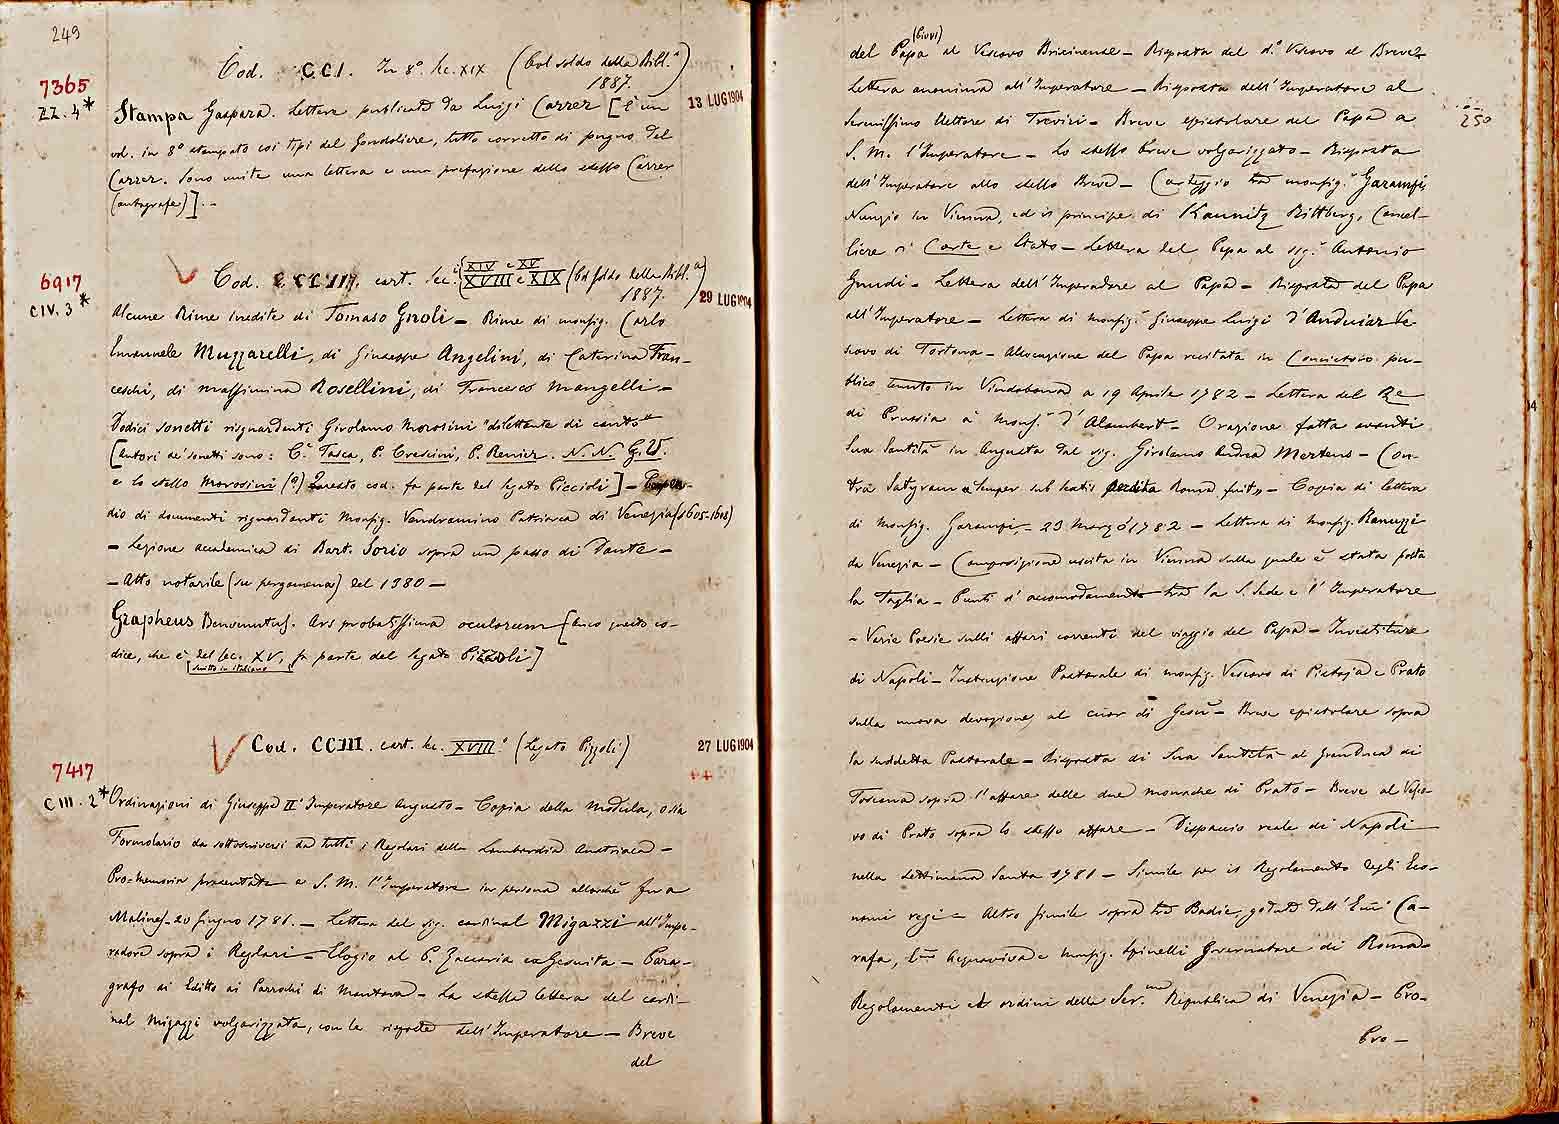 249
Cod. CCI. In 8° Sec. XIX (Col soldo della Bibl.ª)
1887.
7365
ZZ. 4*
13 LUG 1904
Stampa Gaspara. Lettera pubblicata da Luigi Carrer [È un
vol. in 8° stampato coi tipi del Gondoliere, tutto corretto di pugno del
Carrer. Sono unite una lettera e una prefazione dello stesso Carrer
(autografe)].-
Cod. CCVII. cart. Sec.i XIV e XV XVIII e XIX (Col soldo della Bibl.ª)
1887.
6917
CIV. 3*
29 LUG 1904
Alcune Rime inedite di Tomaso Gnoli — Rime di monsig. Carlo
Emanuele Muzzarelli, di Giuseppe Angelini, di Caterina Fran-
ceschi, di Massimina Rosellini, di Francesco Mangelli —
Dodici sonetti risguardanti Girolamo Morosini "dilettante di canto"
[autori dei sonetti sono: C.e Tasca, P. Crescini, P. Renier. N. N. G. W.
e lo stesso Morosini (?) Questo cod. fa parte del legato Piccioli] —
dio di documenti riguardanti Monsig. Vendramino Patriarca di Venezia (1605-1608)
— Lezione accademica di Bart. Sorio sopra un passo di Dante —
— Atto notarile (su pergamena) del 1380 —
Grapheus Benvenutus. Ars probatissima oculorum [anco questo co-
dice, che è del Sec. XV, fa parte del legato Pizzoli]
[scritto in italiano]
Cod. CCIII. cart. Sec. XVIII.° (Legato Pizzoli)
27 LUG 1904
7417
CIII. 2*
Ordinazioni di Giuseppe II° Imperatore Augusto — Copia della Modula, o sia
Formolario da sottoscriversi da tutti i Regolari della Lombardia Austriaca —
Pro-memoria presentata a S. M. l'Imperatore in persona allorchè fu a
Malines 20 Giugno 1781. — Lettera del sig. cardinal Migazzi all'Impe-
radore sopra i Regolari — Elogio al P. Zaccaria exGesuita — Para-
grafo di Editto ai Parrochi di Mantova — La stessa lettera del cardi-
nal Migazzi volgarizzata, con le risposte dell'Imperatore — Breve
del
250
(Pio VI)
del Papa al Vescovo Brixinense — Risposta del d.° Vescovo al Breve —
Lettera anonima all'Imperatore — Risposta dell'Imperatore al
Serenissimo Elettore di Treviri — Breve epistolare del Papa a
S. M. l'Imperatore — Lo stesso breve volgarizzato — Risposta
dell'Imperatore allo stesso Breve — Carteggio tra monsig.r Garampi,
Nunzio in Vienna, ed il principe di Kaunitz Rittberg, Cancel-
liere di Corte e Stato — Lettera del Papa al sig.r Antonio
— Lettera dell'Imperadore al Papa — Risposta del Papa
all'Imperatore — Lettera di monsig.r Giuseppe Luigi d'Andujar Ve-
scovo di Tortona — Allocuzione del Papa recitata in Concistoro pu-
blico tenuto in Vindobona a 19 Aprile 1782 — Lettera del Re
di Prussia à Mons.r d'Alembert — Orazione fatta avanti
Sua Santità in Augusta dal sig. Girolamo Andrea Mertens — Con-
tra Satyram "Semper sub Sextis perdita Roma fuit" — Copia di lettera
di Monsig. Garampi, 23 marzo 1782 — Lettera di monsig. Ranuzzi
da Venezia — Composizione uscita in Vienna sulla quale è stata posta
la Taglia — Punti d'accomodamento tra la S. Sede e l'Imperatore
— Varie Poesie sulli affari correnti del viaggio del Papa — Investiture
di Napoli — Instruzione Pastorale di monsig. Vescovo di Pistoja e Prato
sulla nuova devozione al cuor di Gesù — Breve epistolare sopra
la suddetta Pastorale — Risposta di Sua Santità al Granduca di
Toscana sopra l'affare delle due monache di Prato — Breve al Vesco-
vo di Prato sopra lo stesso affare — Dispaccio reale di Napoli
nella Settimana Santa 1781 — Simile per il Regolamento degli Eco-
nomi regi — Altro simile sopra tre Badie, godute dall'Emi Ca-
rafa, Acquaviva e monsig. Spinelli Governatore di Roma —
Regolamenti et ordini della Ser.ma Republica di Venezia — Pro-
Pro —